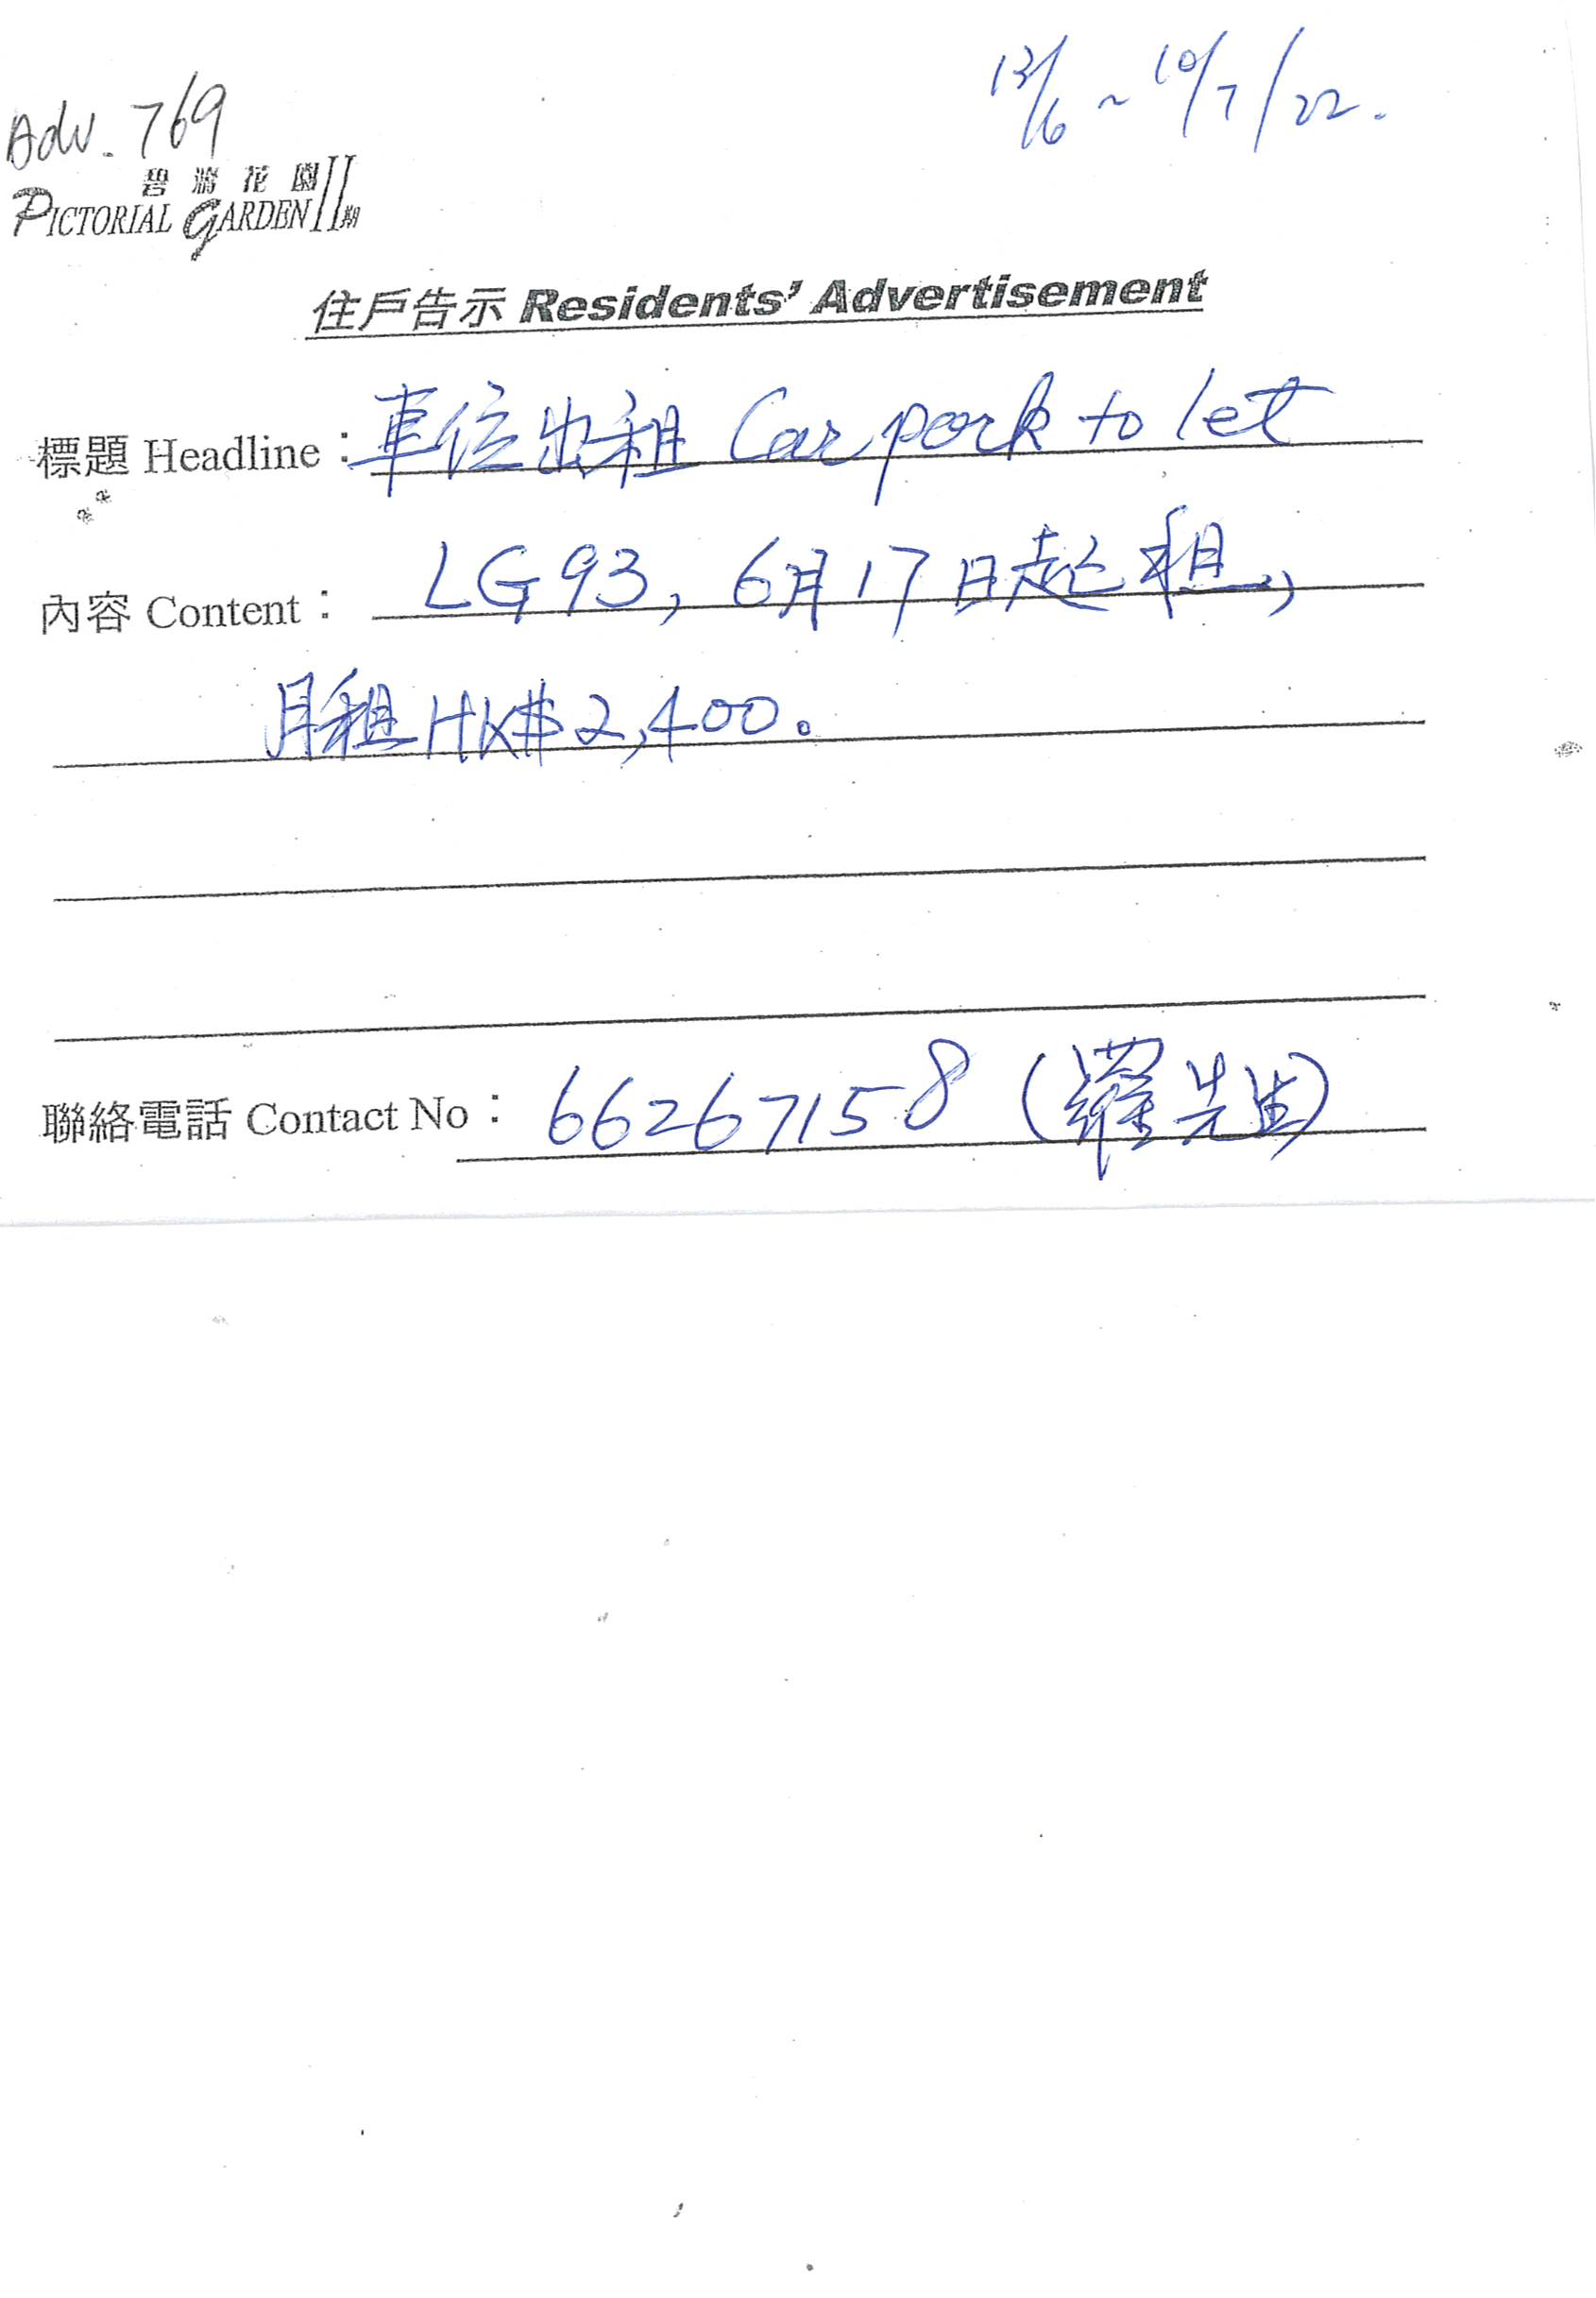 13/6 ~ 10/7/22.
Adv. 769
碧濤花園
PICTORIAL GARDEN II期
住戶告示 Residents' Advertisement
標題 Headline：車位出租 Car park to let
內容 Content： LG93, 6月17日起租,
月租HK$2,400。
聯絡電話 Contact No： 66267158 (羅先生)